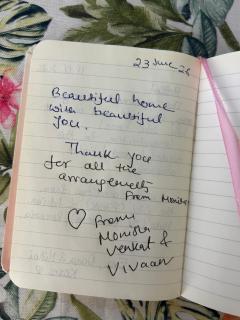 23 June 24
Beautiful home
with beautiful
you.
Thank you
for all the
arrangements
From Monisha
♡ From
Monisha
Venkat &
Vivaan